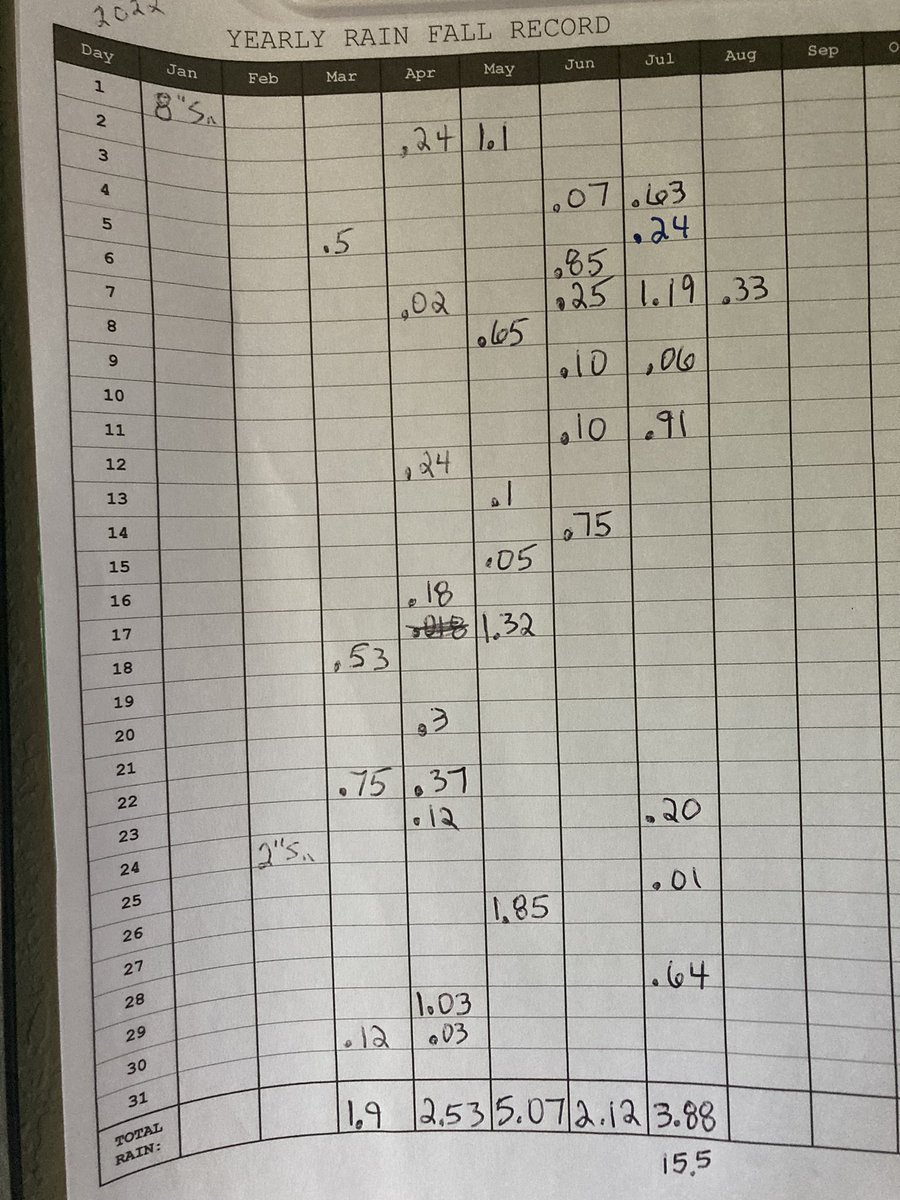 2022
YEARLY RAIN FALL RECORD
Day Jan Feb Mar Apr May Jun Jul Aug Sep O
1 8"Sn
2 .24 1.1
3
4 .07 .63
5 .5 .24
6 .85
7 .02 .25 1.19 .33
8 .65
9 .10 .06
10
11 .10 .91
12 .24
13 .1
14 .75
15 .05
16 .18
17 .018 1.32
18 .53
19
20 .3
21
22 .75 .37
23 .12 .20
24 2"Sn
25 .01
26 1.85
27
28 .64
29 1.03
30 .12 .03
31
TOTAL RAIN: 1.9 2.53 5.07 2.12 3.88
15.5